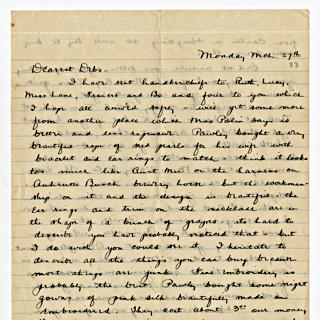 Monday Mch. 29th
33
Dearest Deb:
I have sent handkerchiefs to Ruth, Lucy,
Miss Lane, Frances and Bo and four to you which
I hope all arrived safely - will get some more
from another place which Mrs Palin says is
better and less expensive. Pawley bought a very
beautiful rope of seed pearls for his wife - with
bracelet and ear rings to match - think it looks
too much like Aunt on the harness on
Anheuser Busch brewery horses - but the workman-
ship on it and the design is beautiful - the
ear rings and turn on the necklace are in
the shape of a bunch of grapes - its hard to
describe you have probably noticed that - but
I do wish you could see it. I hesitate to
describe all the things you can buy because
most things are junk. embroidery is
probably the best. Pawley bought some night
gowns of pink silk beautifully made and
embroidered. They cost about 3.00 our money